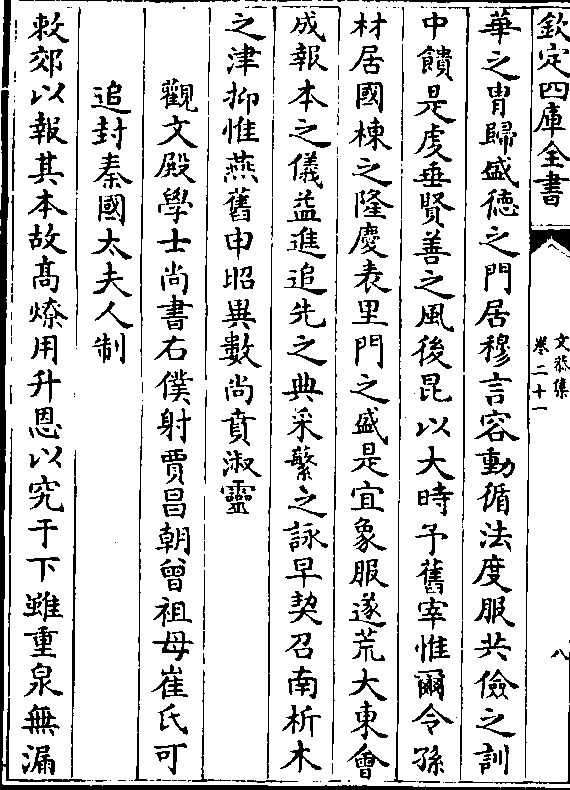 欽定四庫全書
文恭集
卷二十一
八
華之胄歸盛徳之門居穆言容動循法度服共儉之訓
中饋是虔垂賢善之風後昆以大時予舊宰惟爾令孫
材居國棟之隆慶表里門之盛是宜象服遂荒大東會
成報本之儀益進追先之典采蘩之詠早契召南析木
之津抑惟燕舊申昭異數尚賁淑靈
觀文殿學士尚書右僕射賈昌朝曾祖母崔氏可
追封秦國太夫人制
敕郊以報其本故髙燎用升恩以究于下雖重泉無漏